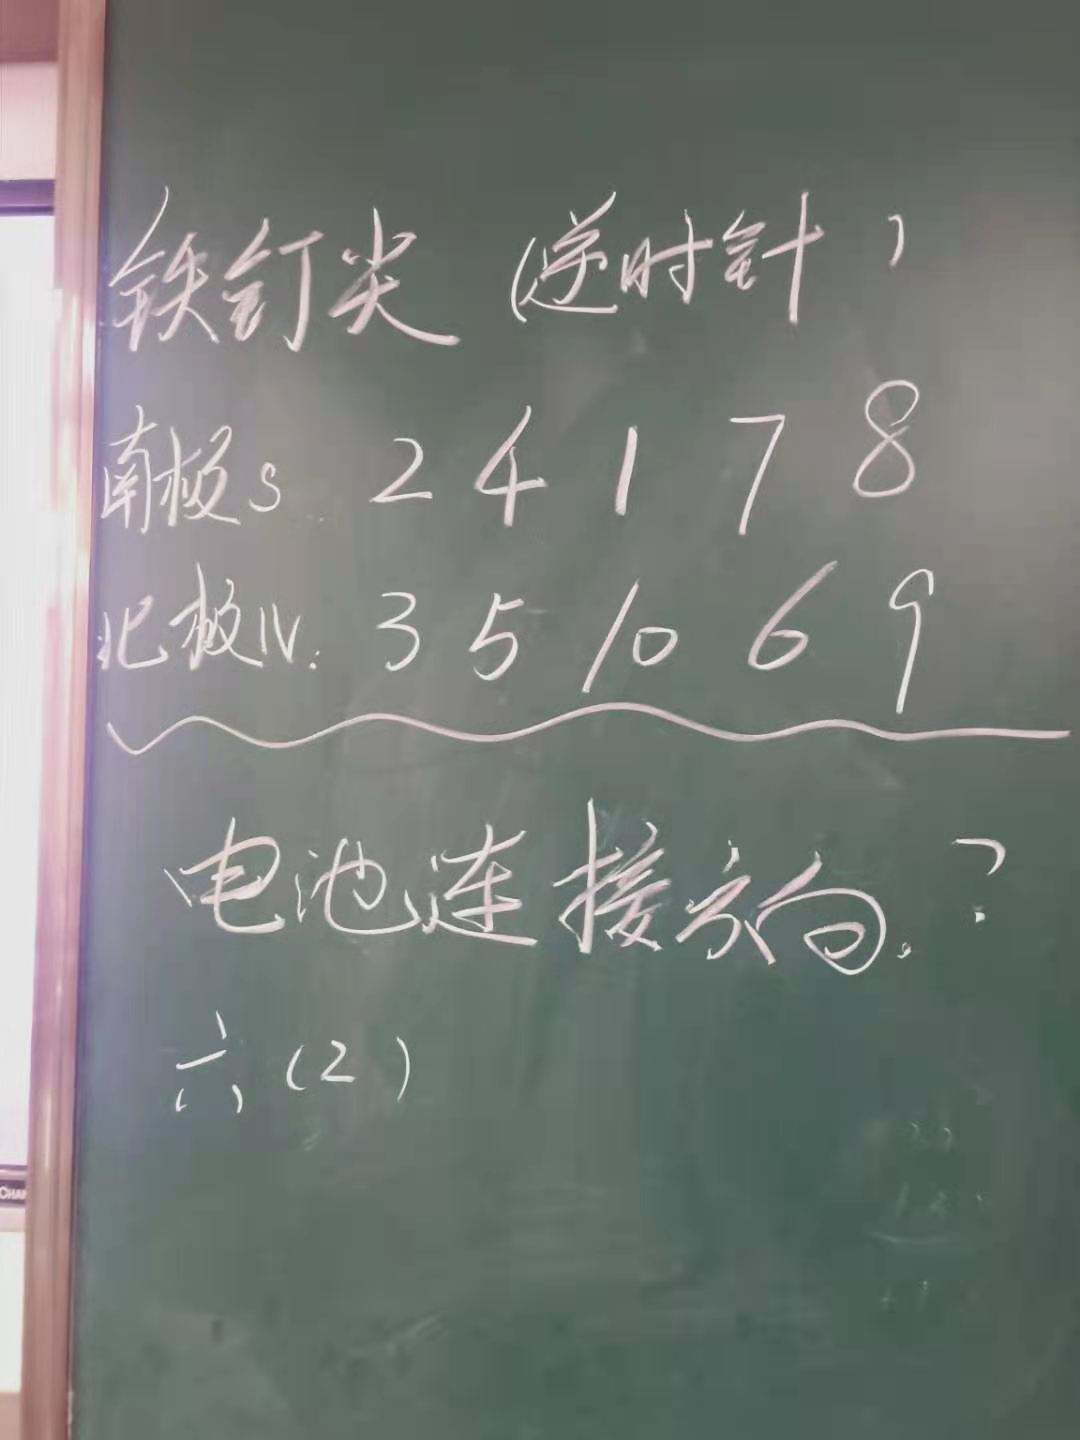 铁钉尖 (逆时针)
南极S 2 4 1 7 8
北极N: 3 5 10 6 9
电池连接方向。?
六(2)